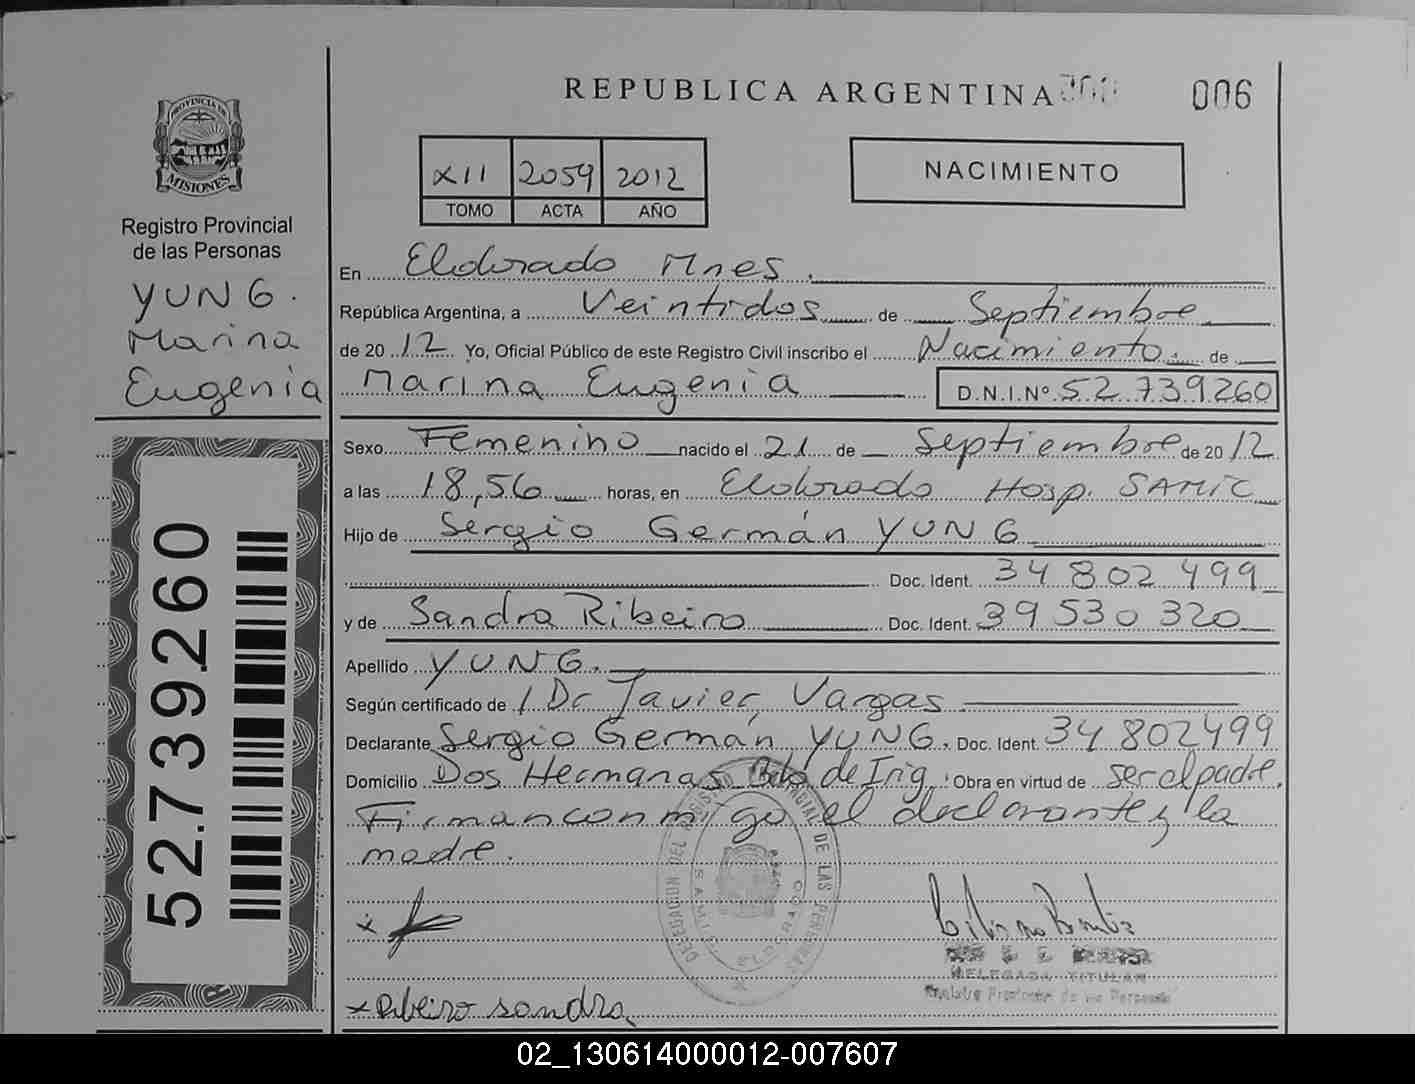 REPUBLICA ARGENTINA
006
PROVINCIA DE
MISIONES
Registro Provincial
de las Personas
YUNG.
Marina
Eugenia
XII 2059 2012
TOMO ACTA AÑO
NACIMIENTO
En Eldorado Mnes.
República Argentina, a Veintidos de Septiembre
de 2012 Yo, Oficial Público de este Registro Civil inscribo el Nacimiento de
Marina Eugenia D.N.I.Nº 52.739.260
Sexo Femenino nacido el 21 de Septiembre de 2012
a las 18,56 horas, en Eldorado Hosp. SAMIC
Hijo de Sergio Germán YUNG
Doc. Ident. 34 802 499
y de Sandra Ribeiro Doc. Ident. 39 530 320
Apellido YUNG.
Según certificado de Dr Javier Vargas
Declarante Sergio Germán YUNG. Doc. Ident. 34 802499
Domicilio Dos Hermanas de Irig. Obra en virtud de ser el padre.
Firman conmigo el declarante y la
madre.
52.739.260
DELEGACION DEL REGISTRO PROVINCIAL DE LAS PERSONAS
ELDORADO
DELEGADA TITULAR
x Ribeiro sandra
02_130614000012-007607